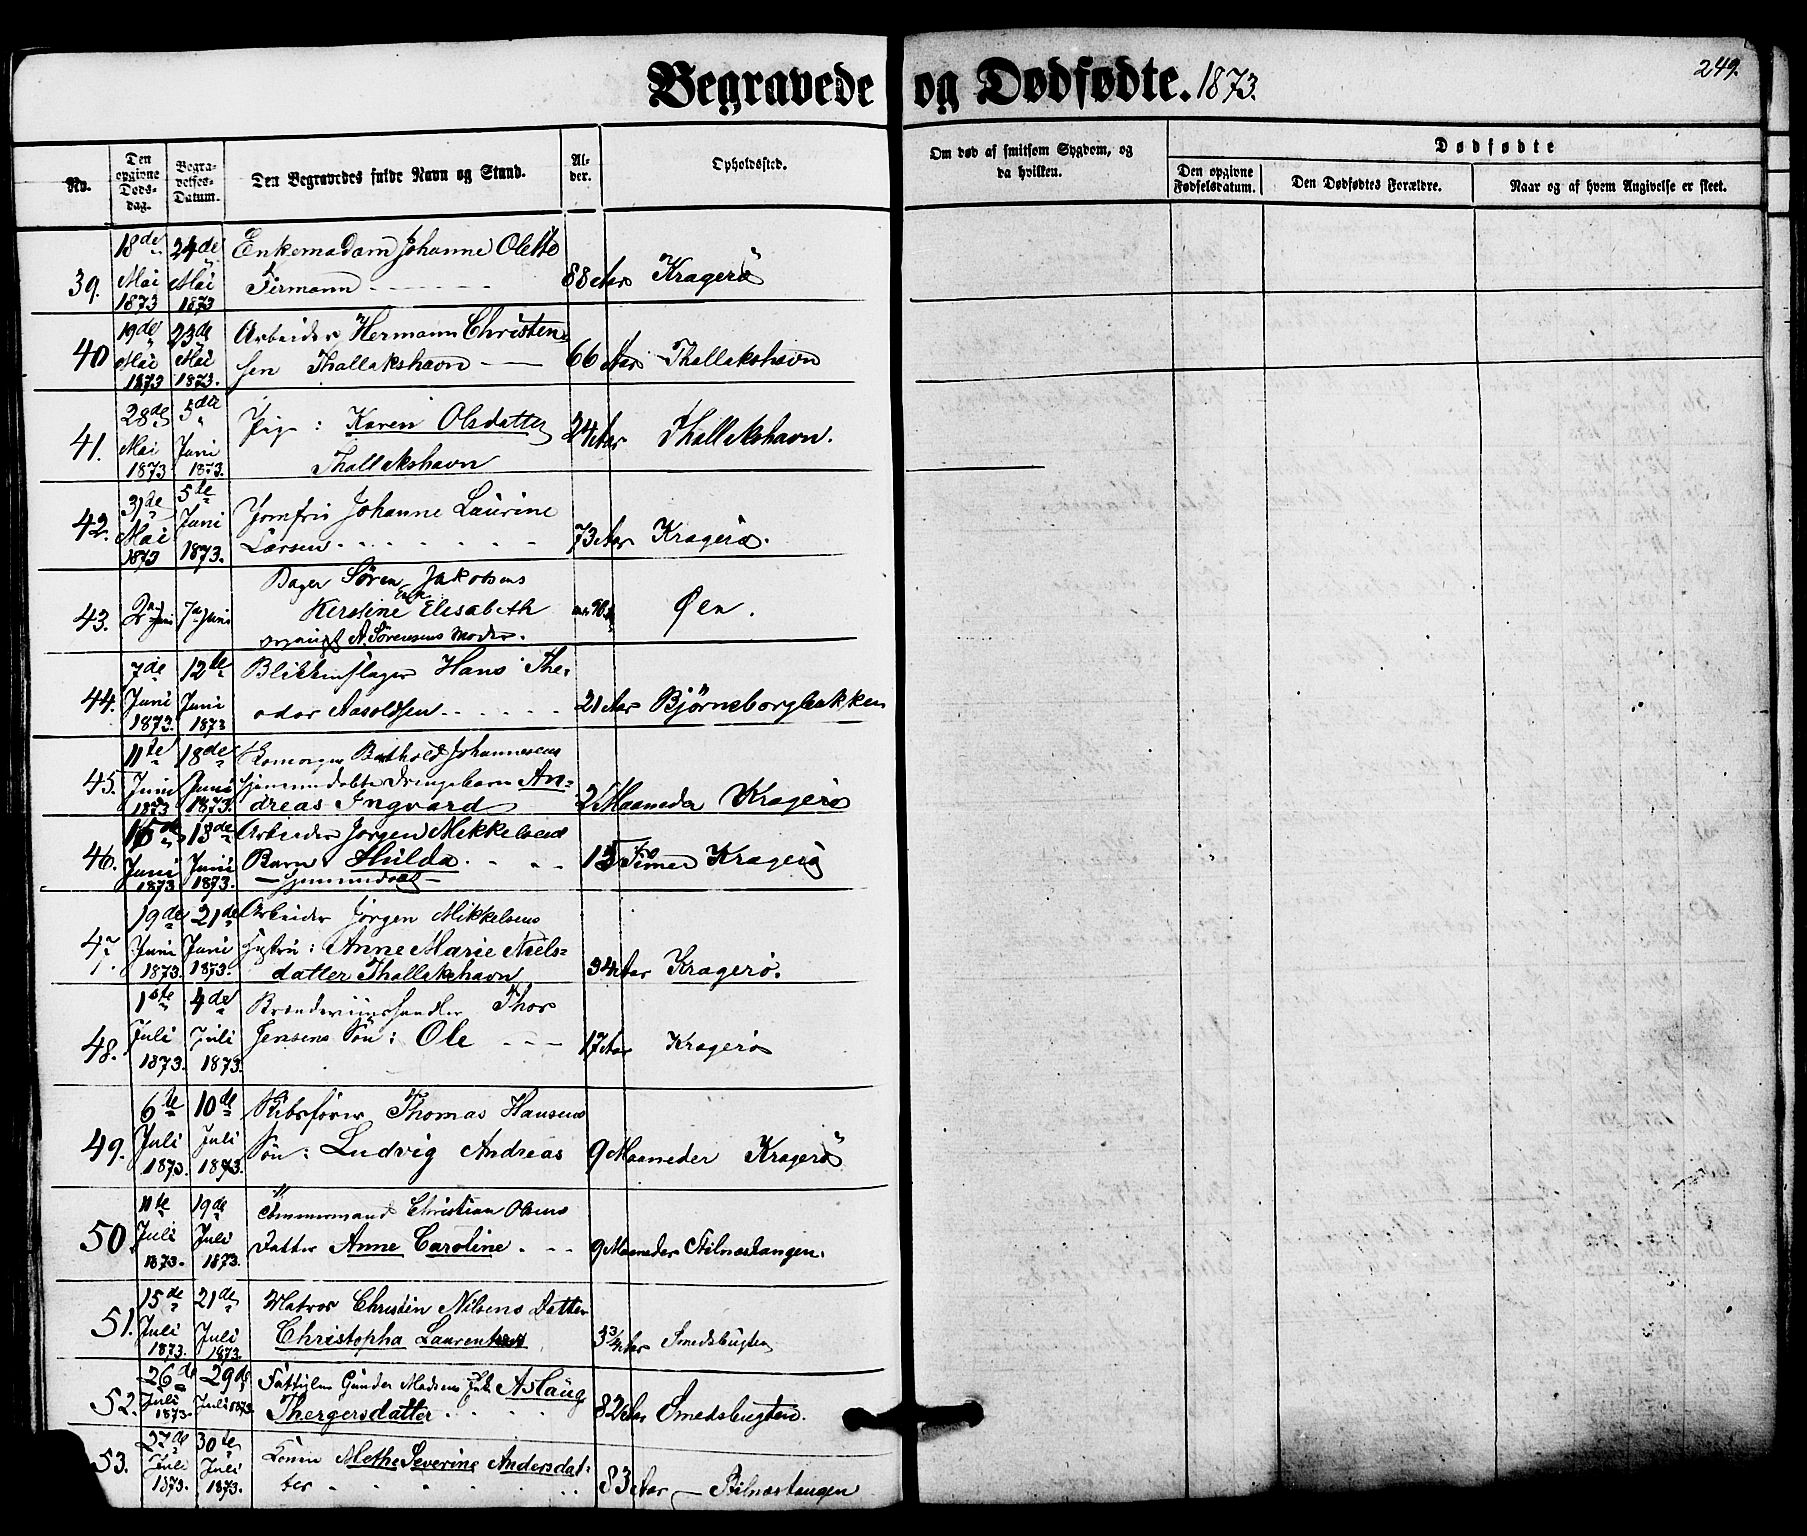 Begravede og Dødfødte. 1873.
249.
No.
Den opgivne Døds-dag.
Begra-velses-Datum.
Den Begravedes fulde Navn og Stand.
Al-der.
Opholdssted.
Om død af smitsom Sygdom, og da hvilken.
Dødfødte
Den opgivne Fødselsdatum.
Den Dødfødtes Forældre.
Naar og af hvem Angivelse er skeet.
18de 24de Enkemadam Johanne Olette
39. Mai Mai Firmann 88 Aar Kragerö
1873 1873
19de 23de Arbeider Hermann Christen-
40 Mai Mai sen Thallakshavn 66 Aar Thallakshavn
1873 1873.
28de 5te Pige: Karen Olsdatter
41. Mai Juni Thallakshavn 24 Aar Thallakshavn.
1873 1873.
31de 5te Jomfru Johanne Laurine
42. Mai Juni Larsen 73 Aar Kragerö.
1873 1873.
Bager Sören Jakobsens
43. 2n Juni 7n Juni Enke Kirstine Elisabeth 90 Øen.
A. Sörensens Moder.
7de 12te Blikkenslager Hans The-
44. Juni Juni odor Aasoldsen 21 Aar Björneborgbakken
1873. 1873
11te 18de Berthold Johannesens
45. Juni Juni hjemmedøbte Drengebarn An-
1873 1873. dreas Ingvard 2 Maaneder Kragerö
15de 18de Arbeider Jørgen Mikkelsens
46. Juni Juni Barn Hulda 15 Timer Kragerö
1873 1873. hjemmedøbt
19de 21de Arbeider Jørgen Mikkelsens
47. Juni Juni Hustru: Anne Marie Niels-
1873. 1873. datter Thallakshavn 34 Aar Kragerö.
1ste 4de Brændeviinshandler Thor
48. Juli Juli Jensens Sön: Ole 17 Aar Kragerö
1873. 1873.
6te 10de Skibsfører Thomas Hansens
49. Juli Juli Sön: Ludvig Andreas 9 Maaneder Kragerö
1873. 1873.
11te 19de Tömmermand Christian Olsens
50. Juli Juli Datter Anne Caroline 9 Maaneder Stilnestangen.
1873. 1873.
15de 21de Matros Christen Nilsens Datter
51. Juli Juli Christopha 3 3/4 Aar Smedsbugten
1873. 1873.
26de 29de Fattiglem Gunder Madsens Enke Aslaug
52. Juli 1873. Juli 1873 Thergersdatter 82 Aar Smedsbugten.
27de 30te
53. Juli Juli Lem Methe Severine Andersdat-
1873. 1873. ter 83 Aar Stilnestangen